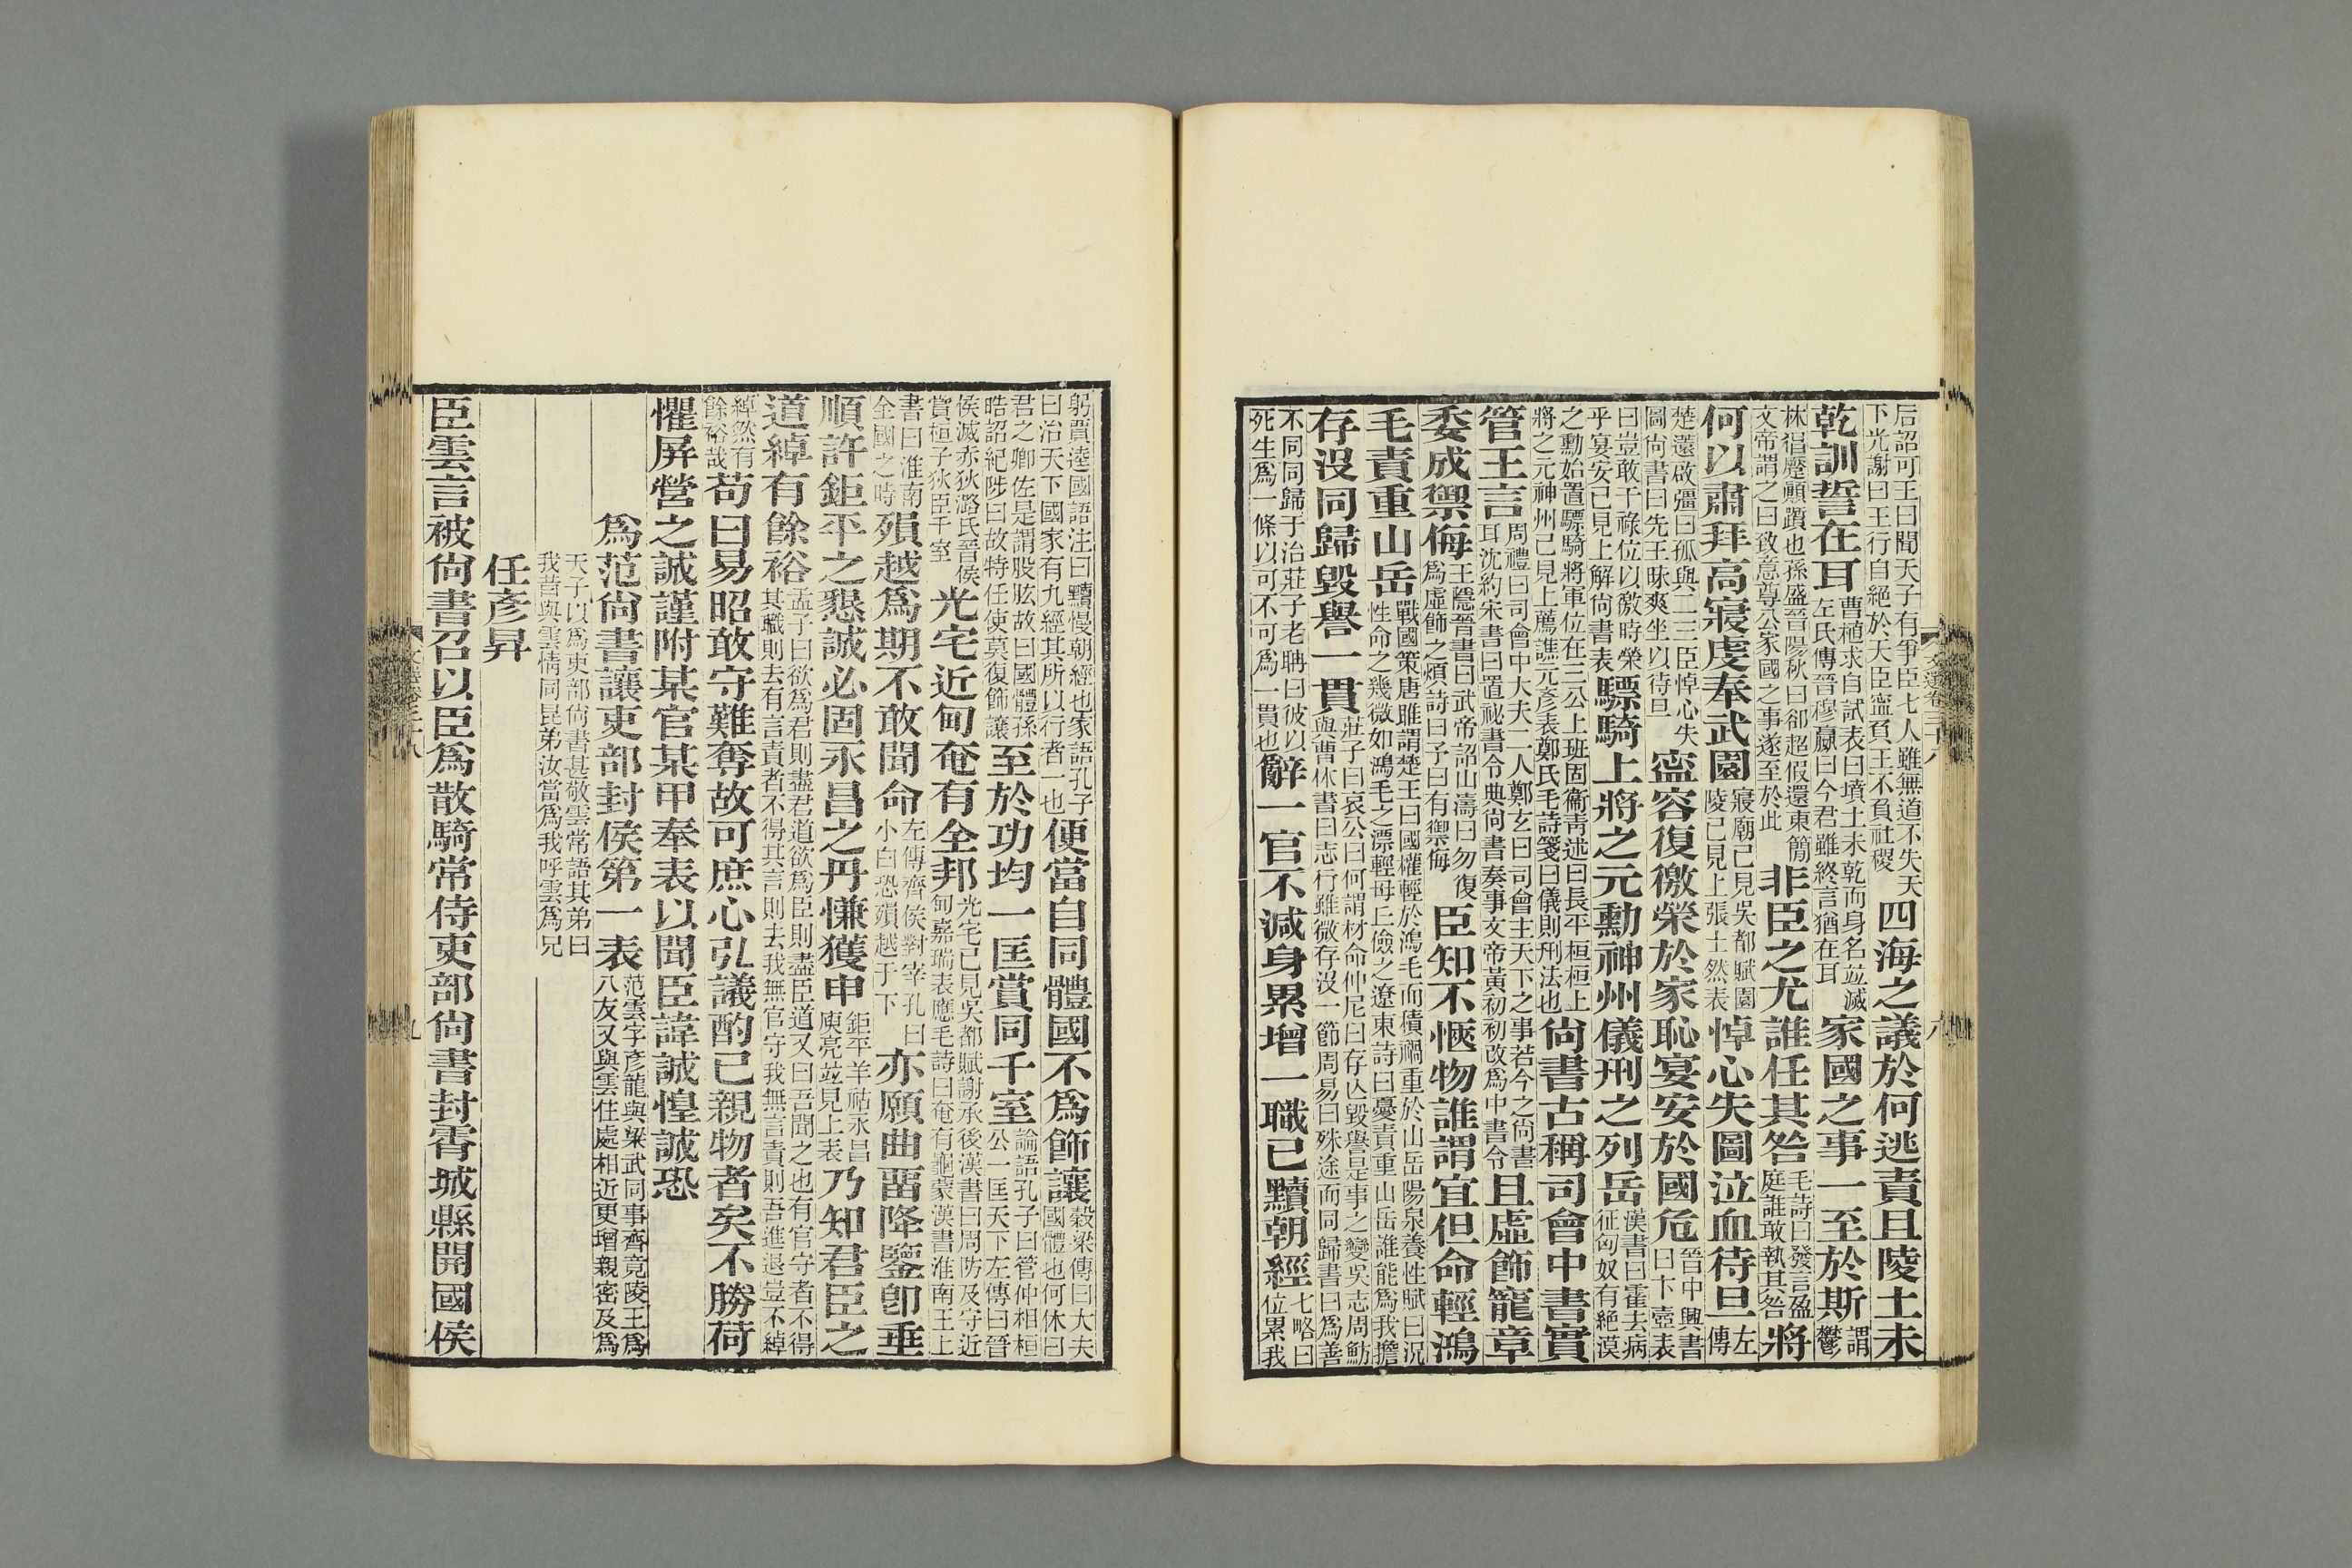 后詔可王曰聞天子有爭臣七人雖無道不失天
下光謝曰王行自絕於天臣寧負王不負社稷
四海之議於何逃責且陵土未
乾訓誓在耳
曹植求自試表曰墳土未乾而身名並滅
左氏傳晉穆嬴曰今君雖終言猶在耳
家國之事一至於斯
謂
鬱
林徊壓顛躓也孫盛晉陽秋曰郤超假還東簡
文帝謂之曰致意尊公家國之事遂至於此
非臣之尤誰任其咎
毛詩曰發言盈
庭誰敢執其咎
將
何以肅拜高寢虔奉武園
寢廟已見吳都賦園
陵已見上張士然表
悼心失圖泣血待旦
左
傳
楚薳啟彊曰孤與二三臣悼心失
圖尚書曰先王昧爽坐以待旦
寧容復徼榮於家恥宴安於國危
晉中興書
曰卞壼表
曰豈敢干祿位以徼時榮
乎宴安已見上解尚書表
驃騎上將之元勳神州儀刑之列岳
漢書曰霍去病
征匈奴有絕漠
之勳始置驃騎將軍位在三公上班固衞青述曰長平桓桓上
將之元神州已見上薦譙元彥表鄭氏毛詩箋曰儀則刑法也
尚書古稱司會中書實
管王言
周禮曰司會中大夫二人鄭玄曰司會主天下之事若今之尚書
耳沈約宋書曰置祕書令典尚書奏事文帝黃初初改爲中書令
且虛飾寵章
委成禦侮
王隱晉書曰武帝詔山濤曰勿復
爲虛飾之煩詩曰予曰有禦侮
臣知不愜物誰謂宜但命輕鴻
毛責重山岳
戰國策唐雎謂楚王曰國權輕於鴻毛而積禍重於山岳陽泉養性賦曰況
性命之幾微如鴻毛之漂輕毋丘儉之遼東詩曰憂責重山岳誰能爲我擔
存沒同歸毀譽一貫
莊子曰哀公曰何謂材命仲尼曰存亾毀譽是事之變吳志周魴
與曹休書曰志行雖微存沒一節周易曰殊途而同歸書曰爲善
不同同歸于治莊子老聃曰彼以
死生爲一條以可不可爲一貫也
辭一官不減身累增一職已黷朝經
七略曰
位累我
文選卷三十八
八
躬賈逵國語注曰黷慢朝經也家語孔子
曰治天下國家有九經其所以行者一也
便當自同體國不爲飾讓
穀梁傳曰大夫
國體也何休曰
君之卿佐是謂股肱故曰國體孫
晧詔紀陟曰故特任使莫復飾讓
至於功均一匡賞同千室
論語孔子曰管仲相桓
公一匡天下左傳曰晉
侯滅赤狄潞氏晉侯
賞桓子狄臣千室
光宅近甸奄有全邦
光宅已見吳都賦謝承後漢書曰周防及守近
甸嘉瑞表應毛詩曰奄有龜蒙漢書淮南王上
書曰淮南
全國之時
殞越爲期不敢聞命
左傳齊侯對宰孔曰
小白恐殞越于下
亦願曲畱降鑒卽垂
順許鉅平之懇誠必固永昌之丹慊獲申
鉅平羊祜永昌
庾亮並見上表
乃知君臣之
道綽有餘裕
孟子曰欲爲君則盡君道欲爲臣則盡臣道又曰吾聞之也有官守者不得
其職則去有言責者不得其言則去我無官守我無言責則吾進退豈不綽
綽然有
餘裕哉
苟曰易昭敢守難奪故可庶心弘議酌己親物者矣不勝荷
懼屏營之誠謹附某官某甲奉表以聞臣諱誠惶誠恐
爲范尚書讓吏部封侯第一表
范雲字彥龍與梁武同事齊竟陵王爲
八友又與雲住處相近更增親密及爲
天子以爲吏部尚書甚敬雲常語其弟曰
我昔與雲情同昆弟汝當爲我呼雲爲兄
任彥昇
臣雲言被尚書召以臣爲散騎常侍吏部尚書封霄城縣開國侯
文選卷三十八
九